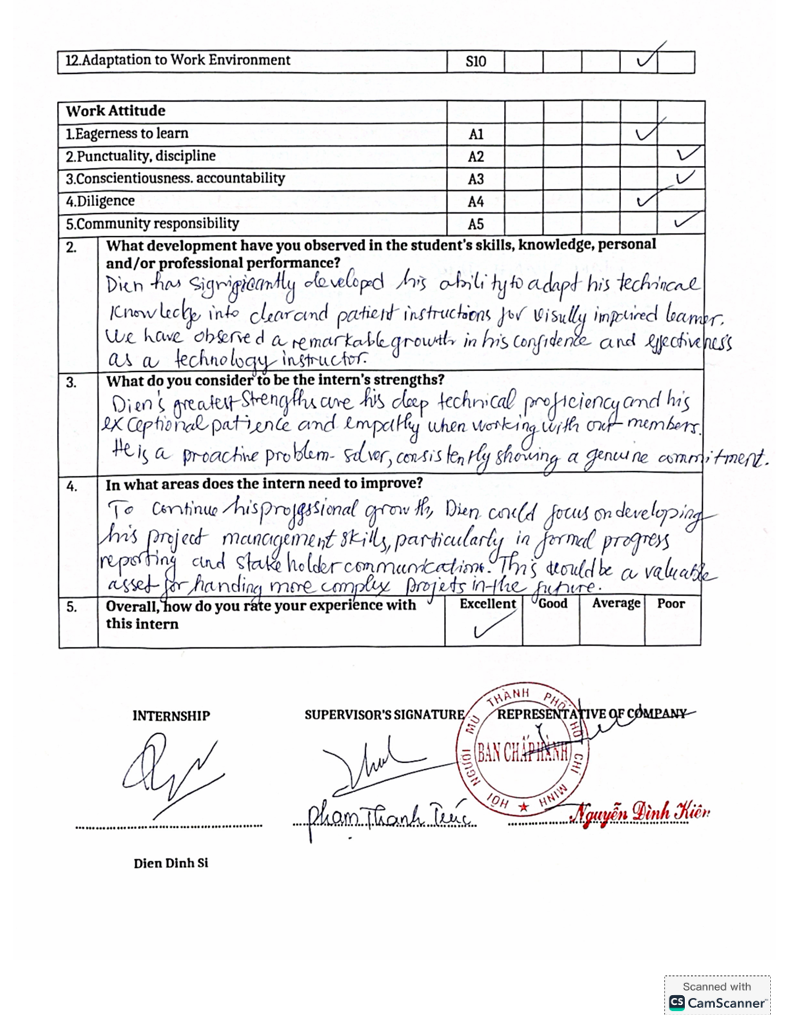 12.Adaptation to Work Environment S10 ✓
Work Attitude
1.Eagerness to learn A1 ✓
2.Punctuality, discipline A2 ✓
3.Conscientiousness. accountability A3 ✓
4.Diligence A4 ✓
5.Community responsibility A5 ✓
2. What development have you observed in the student's skills, knowledge, personal
and/or professional performance?
Dien has signigicantly developed his ability to adapt his techincal
Knowledge into clear and patient instructions for visully impaired learner.
We have observed a remarkable growth in his confidence and effectiveness
as a technology instructor.
3. What do you consider to be the intern's strengths?
Dien's greatest strengths are his deep technical proficiency and his
exceptional patience and empathy when working with our members.
He is a proactive problem-solver, consistently showing a genuine commitment.
4. In what areas does the intern need to improve?
To continue his professional growth, Dien could focus on developing
his project management skills, particularly in formal progress
reporting and stakeholder communications. This would be a valuable
asset for handing more complex projets in the future.
5. Overall, how do you rate your experience with Excellent Good Average Poor
this intern ✓
INTERNSHIP SUPERVISOR'S SIGNATURE REPRESENTATIVE OF COMPANY
HỘI NGƯỜI MÙ THÀNH PHỐ HỒ CHÍ MINH
BAN CHẤP HÀNH
Phạm Thanh Trúc Nguyễn Đình Kiên
Dien Dinh Si
Scanned with
CS CamScanner